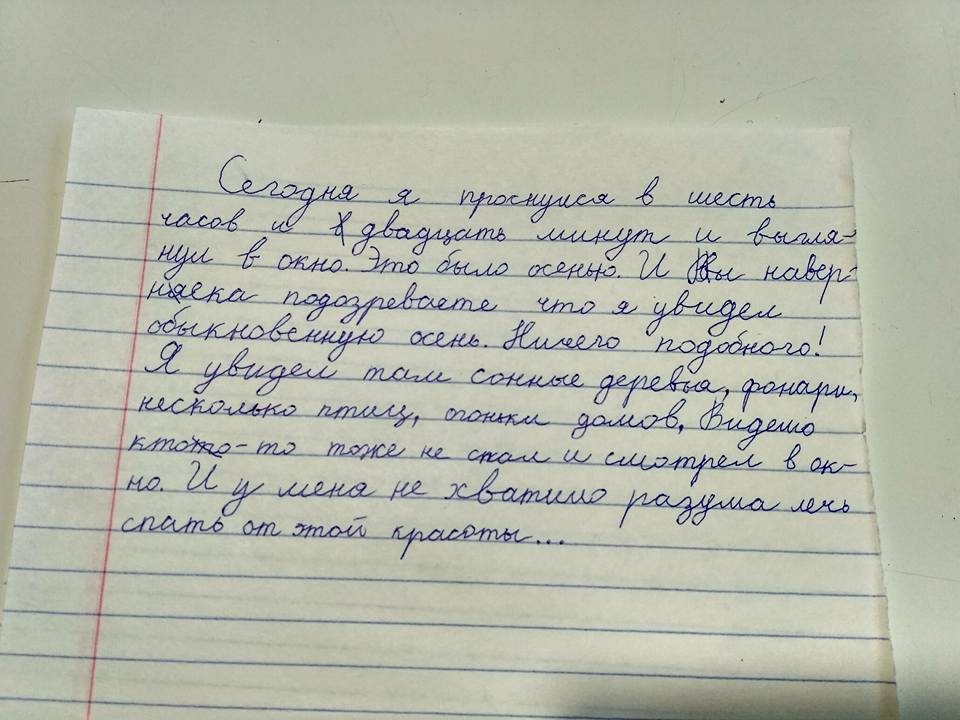 Сегодня я проснулся в шесть
часов и двадцать минут и выгля-
нул в окно. Это было осенью. И Вы навер-
няека подозреваете что я увидел
обыкновенную осень. Ничего подобного!
Я увидел там сонные деревья, фонари,
несколько птиц, огоньки домов, Видешо
ктото-то тоже не спал и смотрел в ок-
но. И у меня не хватило разума лечь
спать от этой красоты...